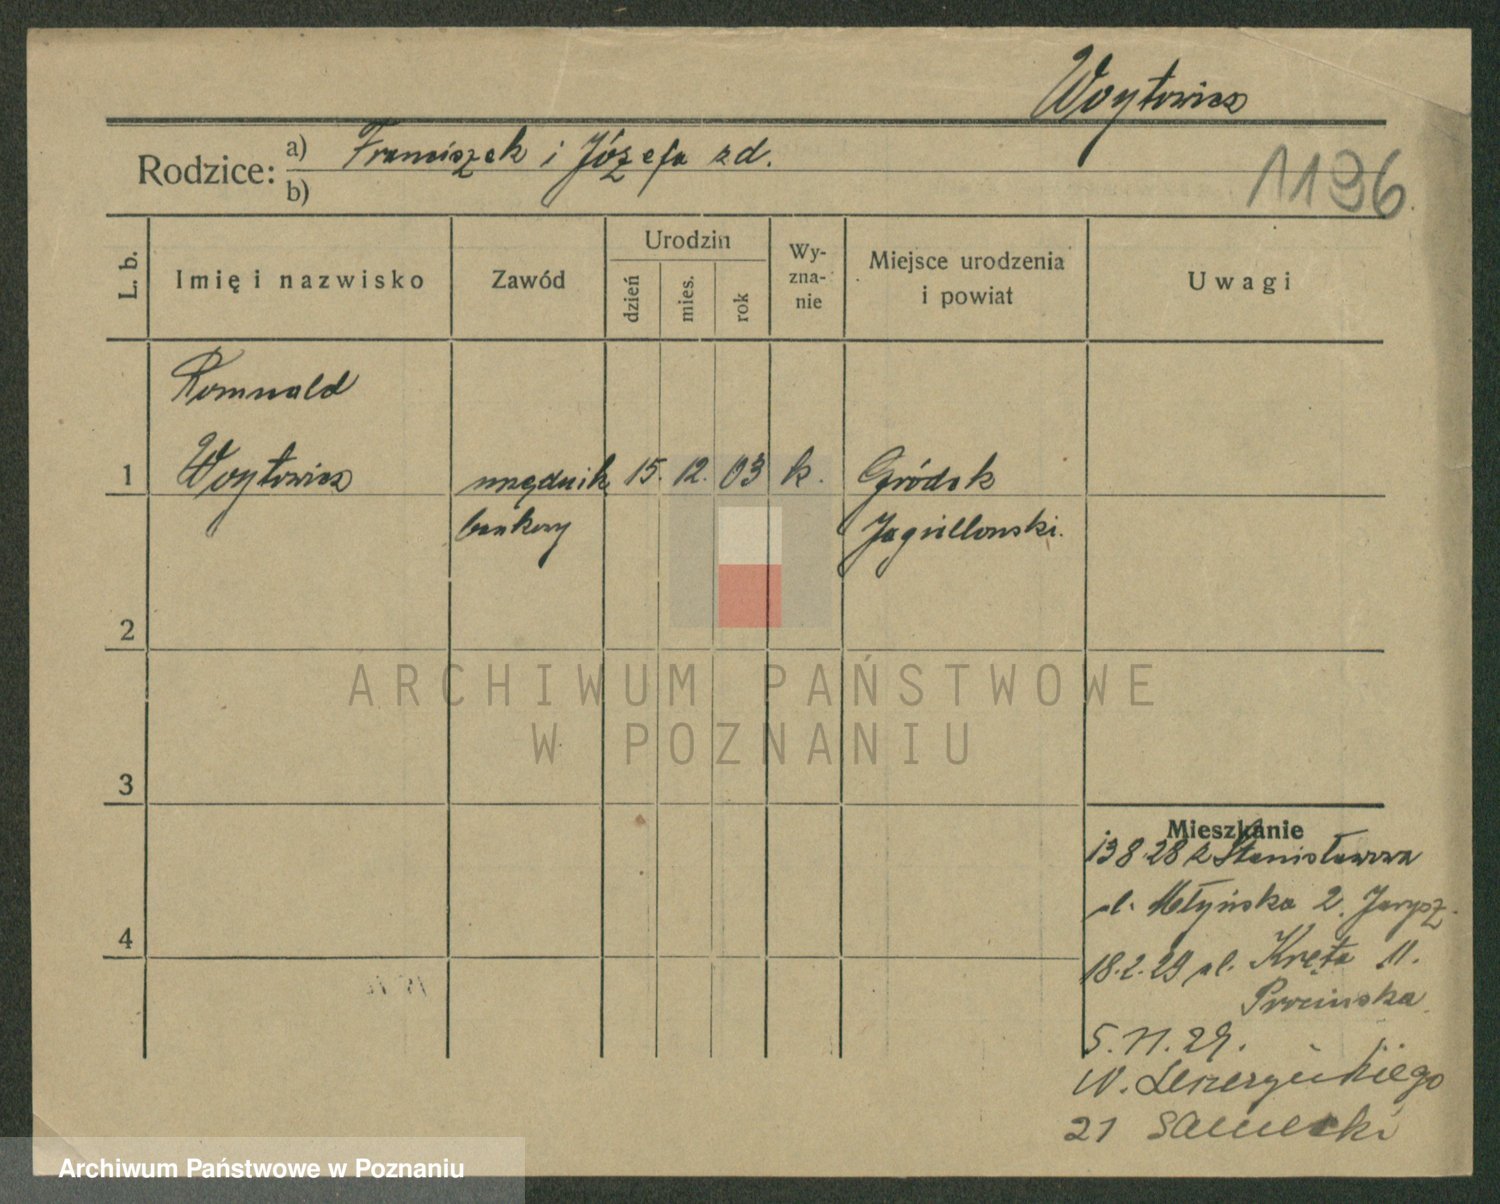 Woytowicz
Rodzice: a) Franciszek i Józefa zd.
b)
1196
L. b.
Imię i nazwisko
Zawód
Urodzin
dzień
mies.
rok
Wy-
zna-
nie
Miejsce urodzenia
i powiat
Uwagi
Romuald
1 Woytowicz urzędnik 15. 12. 03 k. Gródek
bankowy Jagiellonski.
2
3
4
Mieszkanie
13 8 28 z Stanisławowa
ul. Młyńska 2. Jarysz.
18.2.29 ul. Kręta 11.
5.11.29.
W.
21
ARCHIWUM PAŃSTWOWE
W POZNANIU
Archiwum Państwowe w Poznaniu